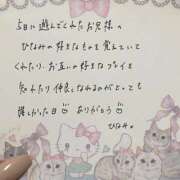 5日に遊んでくれたお兄様へ
ひなみの好きなものを覚えていて
くれたり、お互いの好きなプレイを
知れたり仲良くなれるのがとっても
嬉しかった日
ありがとう
ひなみ